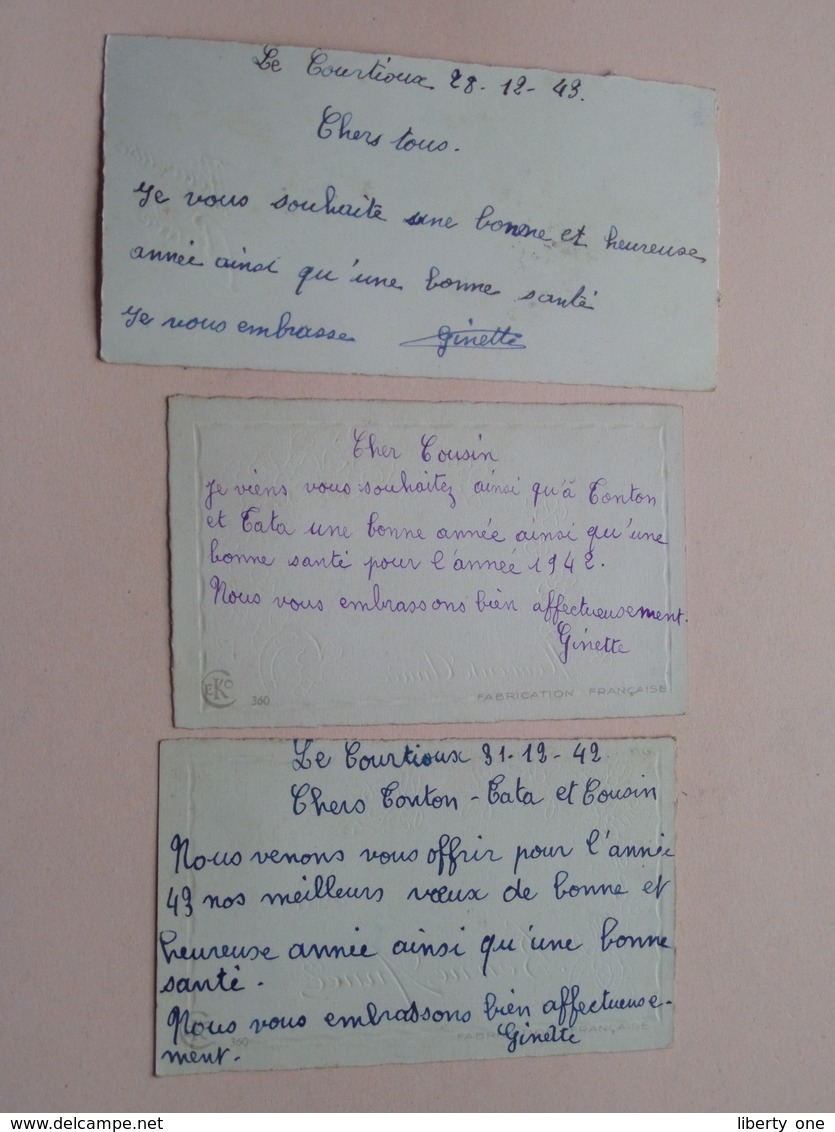 Le Courtioux 28-12-43.
Chers tous.
Je vous souhaite une bonne et heureuse
année ainsi qu'une bonne santé
Je vous embrasse Ginette
Cher Cousin
Je viens vous souhaitez ainsi qu'à Tonton
et Tata une bonne année ainsi qu'une
bonne santé pour l'année 1942.
Nous vous embrassons bien affectueusement.
Ginette
EKO 360 FABRICATION FRANÇAISE
Le Courtioux 31-12-42
Chers Tonton - Tata et Cousin
Nous venons vous offrir pour l'année
43 nos meilleurs vœux de bonne et
heureuse année ainsi qu'une bonne
santé.
Nous vous embrassons bien affectueuse-
ment. Ginette
360 FABRICATION FRANÇAISE
www.delcampe.net liberty one